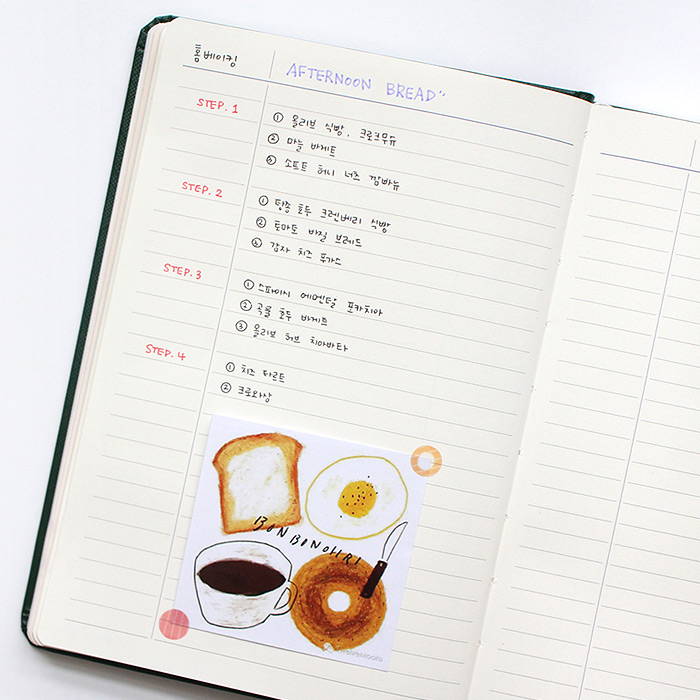 홈베이킹 AFTERNOON BREAD"
STEP. 1
① 올리브 식빵, 크로크무슈
② 마늘 바게트
③ 소프트 허니 너츠 깜빠뉴
STEP. 2
① 탕종 호두 크렌베리 식빵
② 토마토 바질 브레드
③ 감자 치즈 푸가스
STEP. 3
① 스파이시 에멘탈 포카치아
② 곡물 호두 바게트
③ 올리브 허브 치아바타
STEP. 4
① 치즈 타르트
② 크로와상
BONBONOHRI